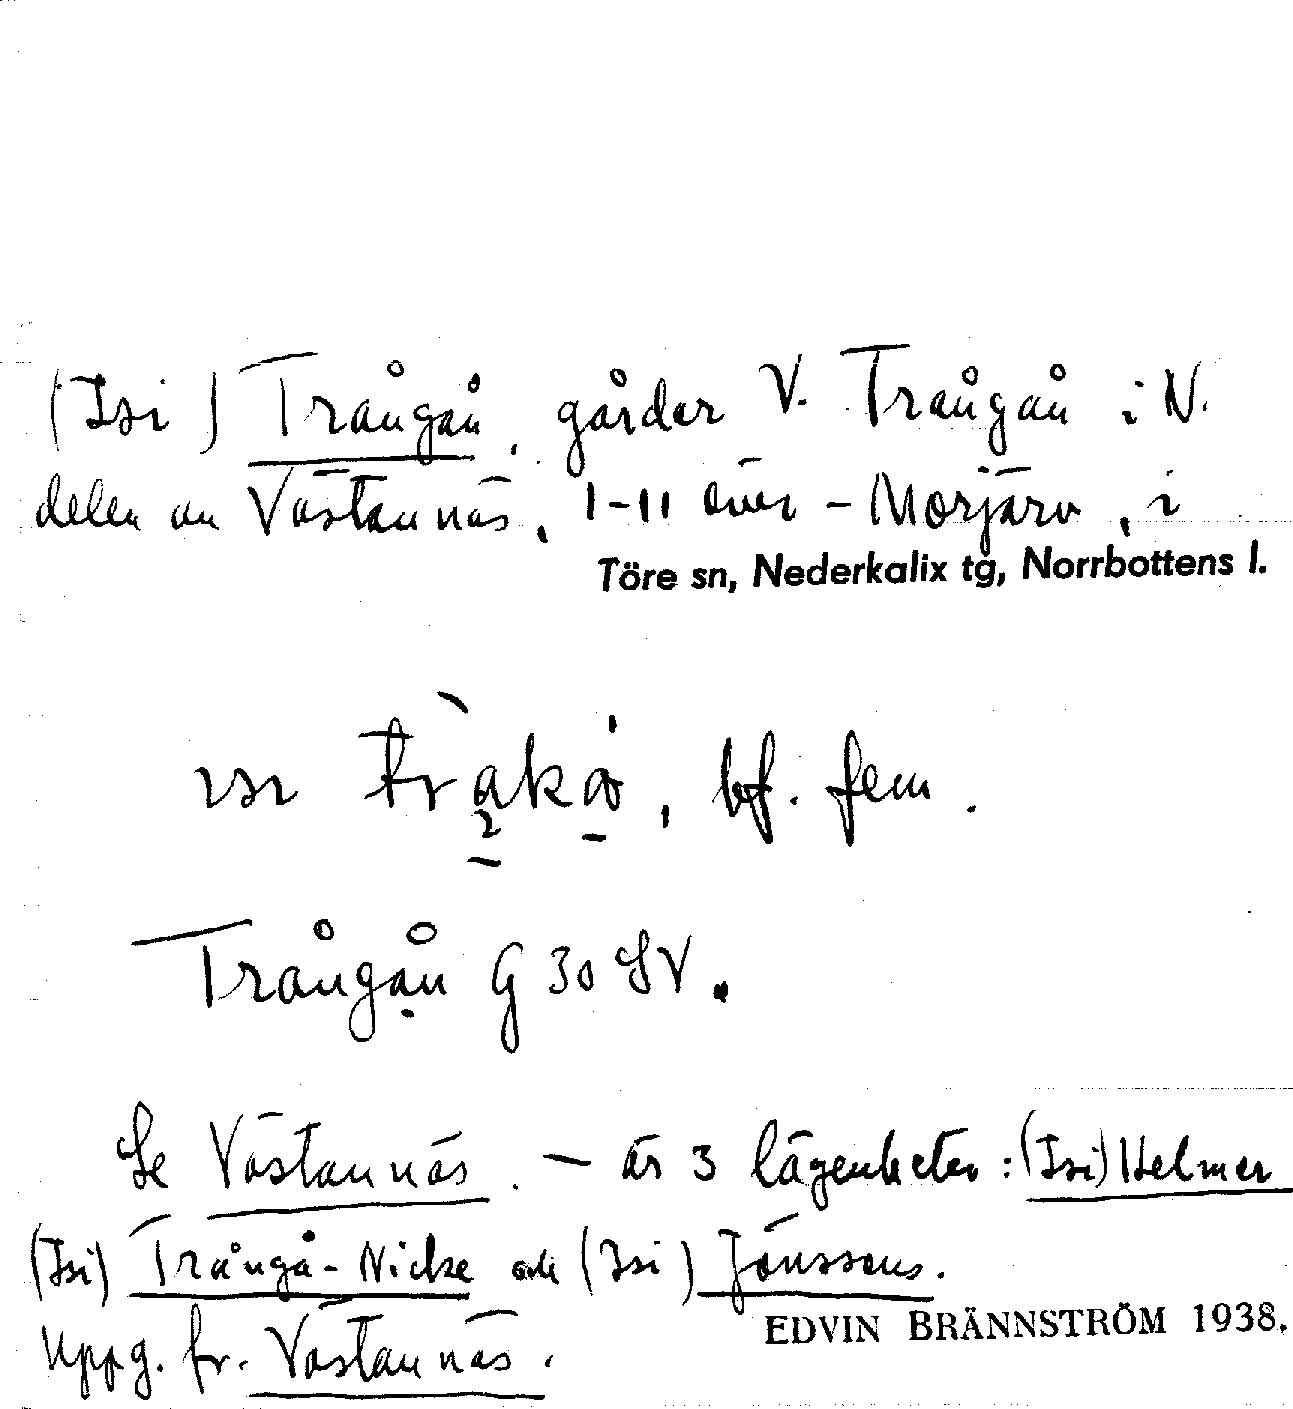 (Isi) Trångån, gårdar V. Trångån i N.
delen av Västannäs, 1-11 över-Morjärv, i
Töre sn, Nederkalix tg, Norrbottens l.
bf. fem.
Trångån G 30 SV.
Se Västannäs. – är 3 lägenheter: (Isi) Helmer
(Isi) Trångå-Nicke och (Isi) Jönssons.
EDVIN BRÄNNSTRÖM 1938.
Uppg. fr. Västannäs.